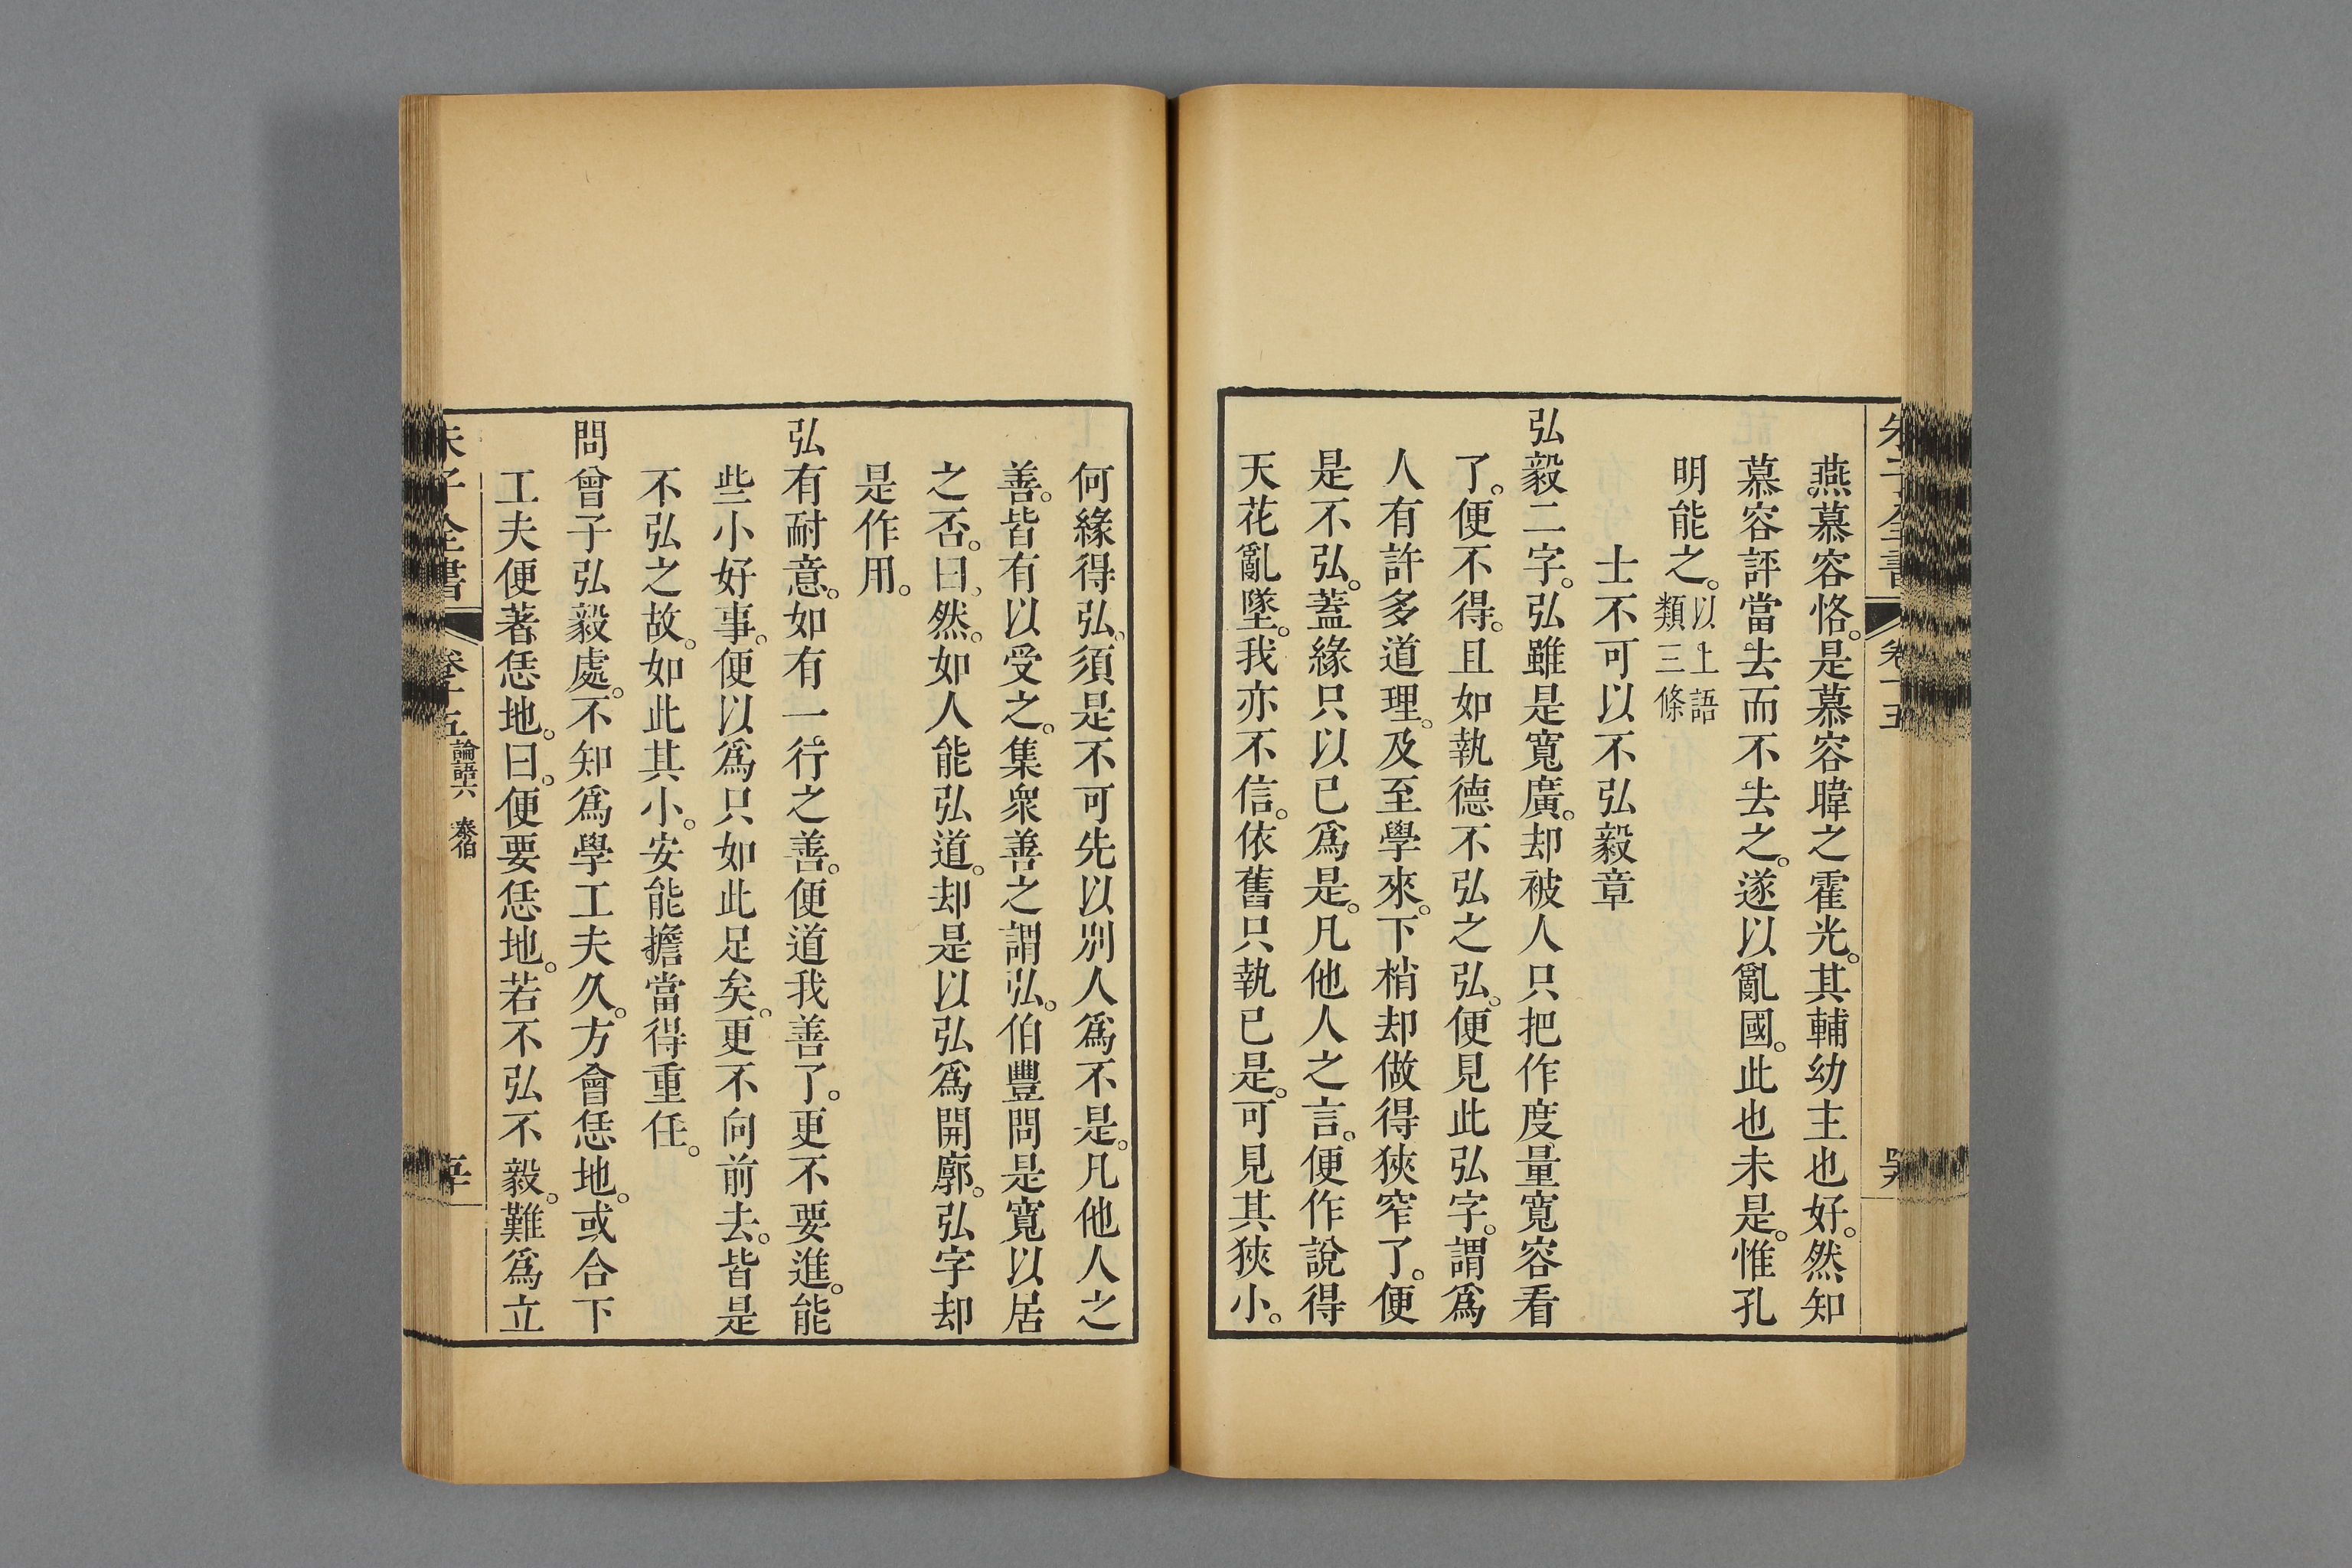 朱子全書 卷十五
燕慕容恪。是慕容暐之霍光。其輔幼主也好。然知
慕容評當去而不去之。遂以亂國。此也未是。惟孔
明能之。以上語類三條
士不可以不弘毅章
弘毅二字。弘雖是寬廣。却被人只把作度量寬容看
了。便不得。且如執德不弘之弘。便見此弘字。謂爲
人有許多道理。及至學來。下梢却做得狹窄了。便
是不弘。蓋緣只以已爲是。凡他人之言。便作說得
天花亂墜。我亦不信。依舊只執已是。可見其狹小。
何緣得弘。須是不可先以别人爲不是。凡他人之
善。皆有以受之。集衆善之謂弘。伯豐問是寬以居
之否。曰、然。如人能弘道。却是以弘爲開廓。弘字却
是作用。
弘有耐意。如有一行之善。便道我善了。更不要進。能
些小好事。便以爲只如此足矣。更不向前去。皆是
不弘之故。如此其小。安能擔當得重任。
問曾子弘毅處。不知爲學工夫久。方會恁地。或合下
工夫便著恁地。曰。便要恁地。若不弘不毅。難爲立
朱子全書 卷十五 論語六 泰伯